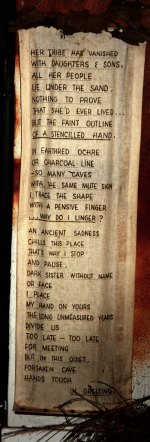 HER TRIBE HAS VANISHED
WITH DAUGHTERS & SONS.
ALL HER PEOPLE
LIE UNDER THE SAND.
NOTHING TO PROVE
THAT SHE'D EVER LIVED...
BUT THE FAINT OUTLINE
OF A STENCILLED HAND.
IN EARTHRED OCHRE
OR CHARCOAL LINE
-SO MANY CAVES
WITH THE SAME MUTE SIGN
I TRACE THE SHAPE
WITH A PENSIVE FINGER
...WHY DO I LINGER?
AN ANCIENT SADNESS
CHILLS THIS PLACE
THAT'S WHY I STOP
AND PAUSE.
DARK SISTER WITHOUT NAME
OR FACE
I PLACE
MY HAND ON YOURS
THE LONG UNMEASURED YEARS
DIVIDE US
TOO LATE - TOO LATE
FOR MEETING
BUT IN THIS QUIET
FORSAKEN CAVE
HANDS TOUCH
IN GREETING